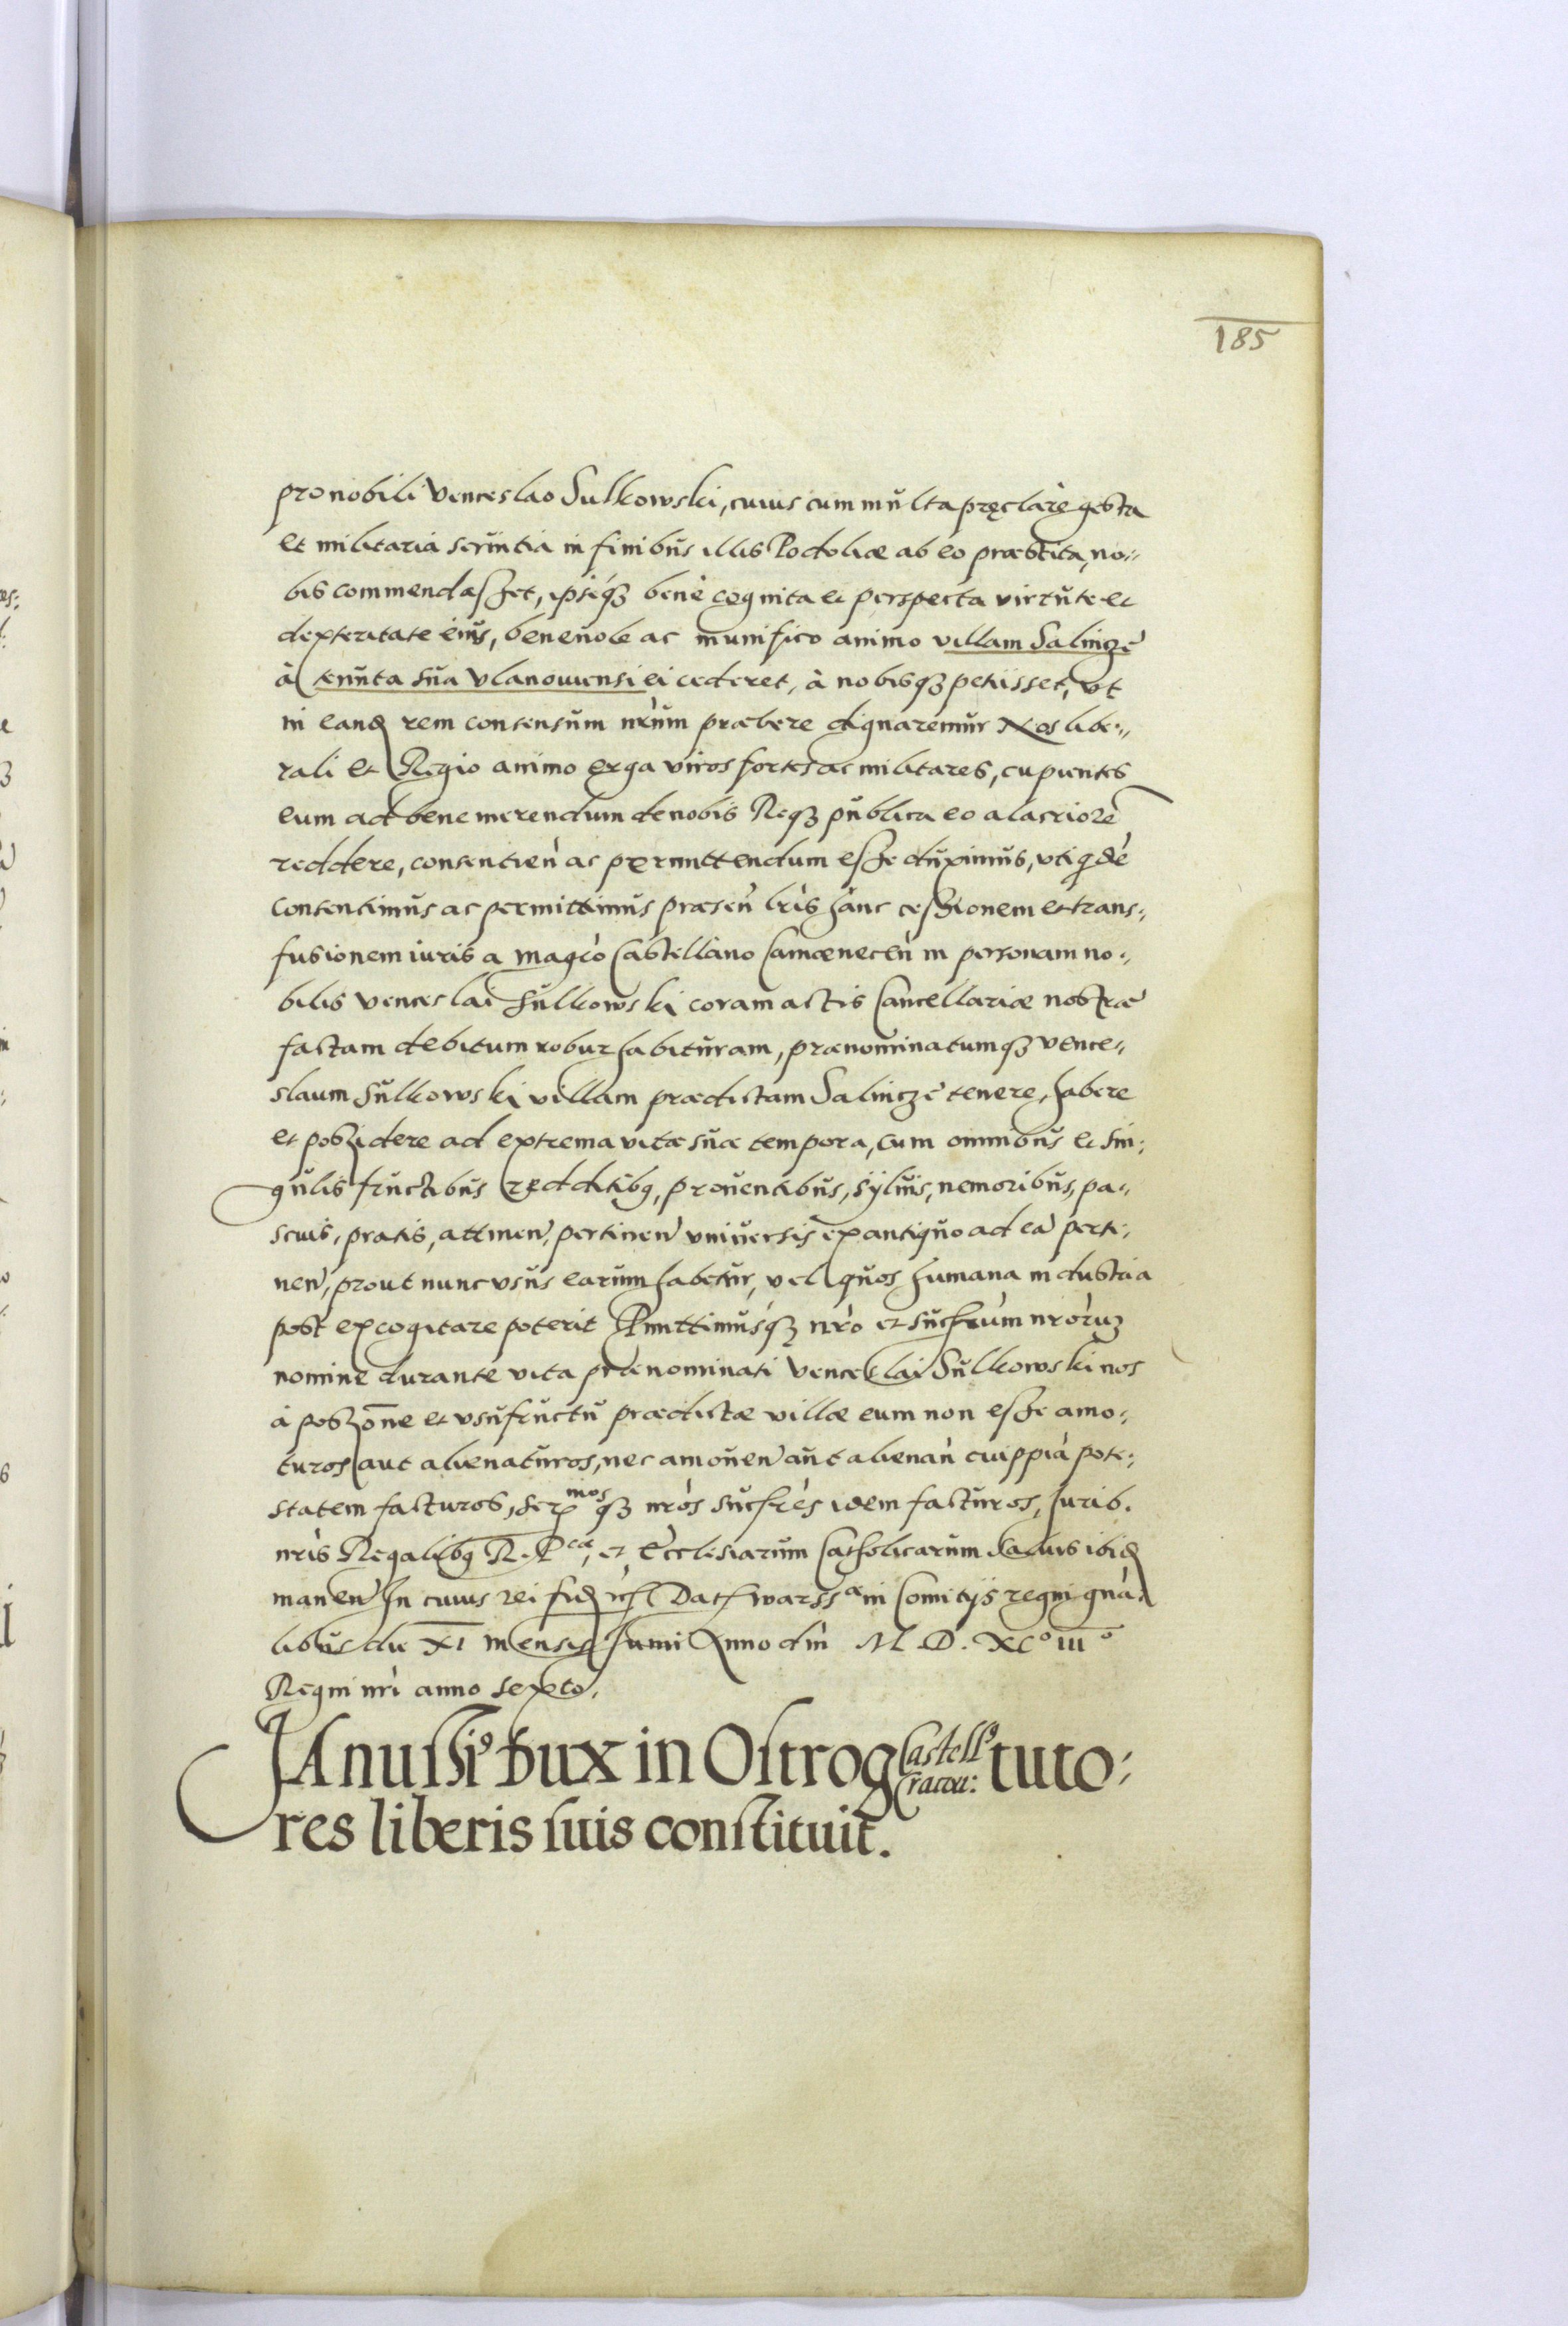 185
pro nobili Venceslao Sulkowski, cuius cum multa pręclarè gesta
et militaria seruitia in finibus illis Podoliæ ab eo præstita, no=
bis commendasset, ipseq3 benè cognita et perspecta virtute et
dexteritate eius, beneuole ac munifico animo villam Salinczè
à tenuta sua Vlanouiensi ei cederet, à nobisq3 petiisset, vt
in eand rem consensum nr̃um præbere dignaremur Nos libe=
rali et Regio animo erga viros fortes ac militares, cupientes
eum ad bene merendum de nobis Reiq3 publica eo alacriorẽ
reddere, consentien̄ ac permittendum esse duximus, vti qdẽ
consentimus ac permittimus præsen̄ lr̃is hanc cessionem et trans=
fusionem iuris a magco Castellano Camænecen̄ in personam no=
bilis Venceslai Sulkowski coram actis Cancellariæ nostræ
factam debitum robur habituram, prænominatumq3 Vence=
slaum Sulkowski villam prædictam Salinczè tenere, habere
et possidere ad extrema vitæ suæ tempora, cum omnibus et sin=
gulis fructibus redditibq, prouentibus, syluis, nemoribus, pa=
scuis, pratis, attinen̄, pertinen̄ vniuersis ex antiquo ad eā perti=
nen̄, prout nunc vsus earum habetur, vel quos humana industria
post excogitare poterit Pmittimusq3 nr̃o et Succr̃um nr̃oruz
nomine durante vita prænominati Venceslai Sulkowski nos
à possone et vsufructu prædictæ villæ eum non esse amo=
turos aut alienaturos, nec amouen̄ aut alienan̄ cuippiā pote=
statem facturos, Sermosq3 nr̃os succr̃es idem facturos, Jurib.
nr̃is Regalibq R. Pcæ, et Ecclesiarum Catholicarum saluis ibid
manen̄ In cuius rei fid Dat Warssæ in Comitijs regni gna=
libus die XI mensis Junii Anno dni M. D. XCo IIIo
Regni nr̃i anno sexto.
JAnussi9 Dux in Ostrog Castell9 Cracou: tuto=
res liberis suis constituit.